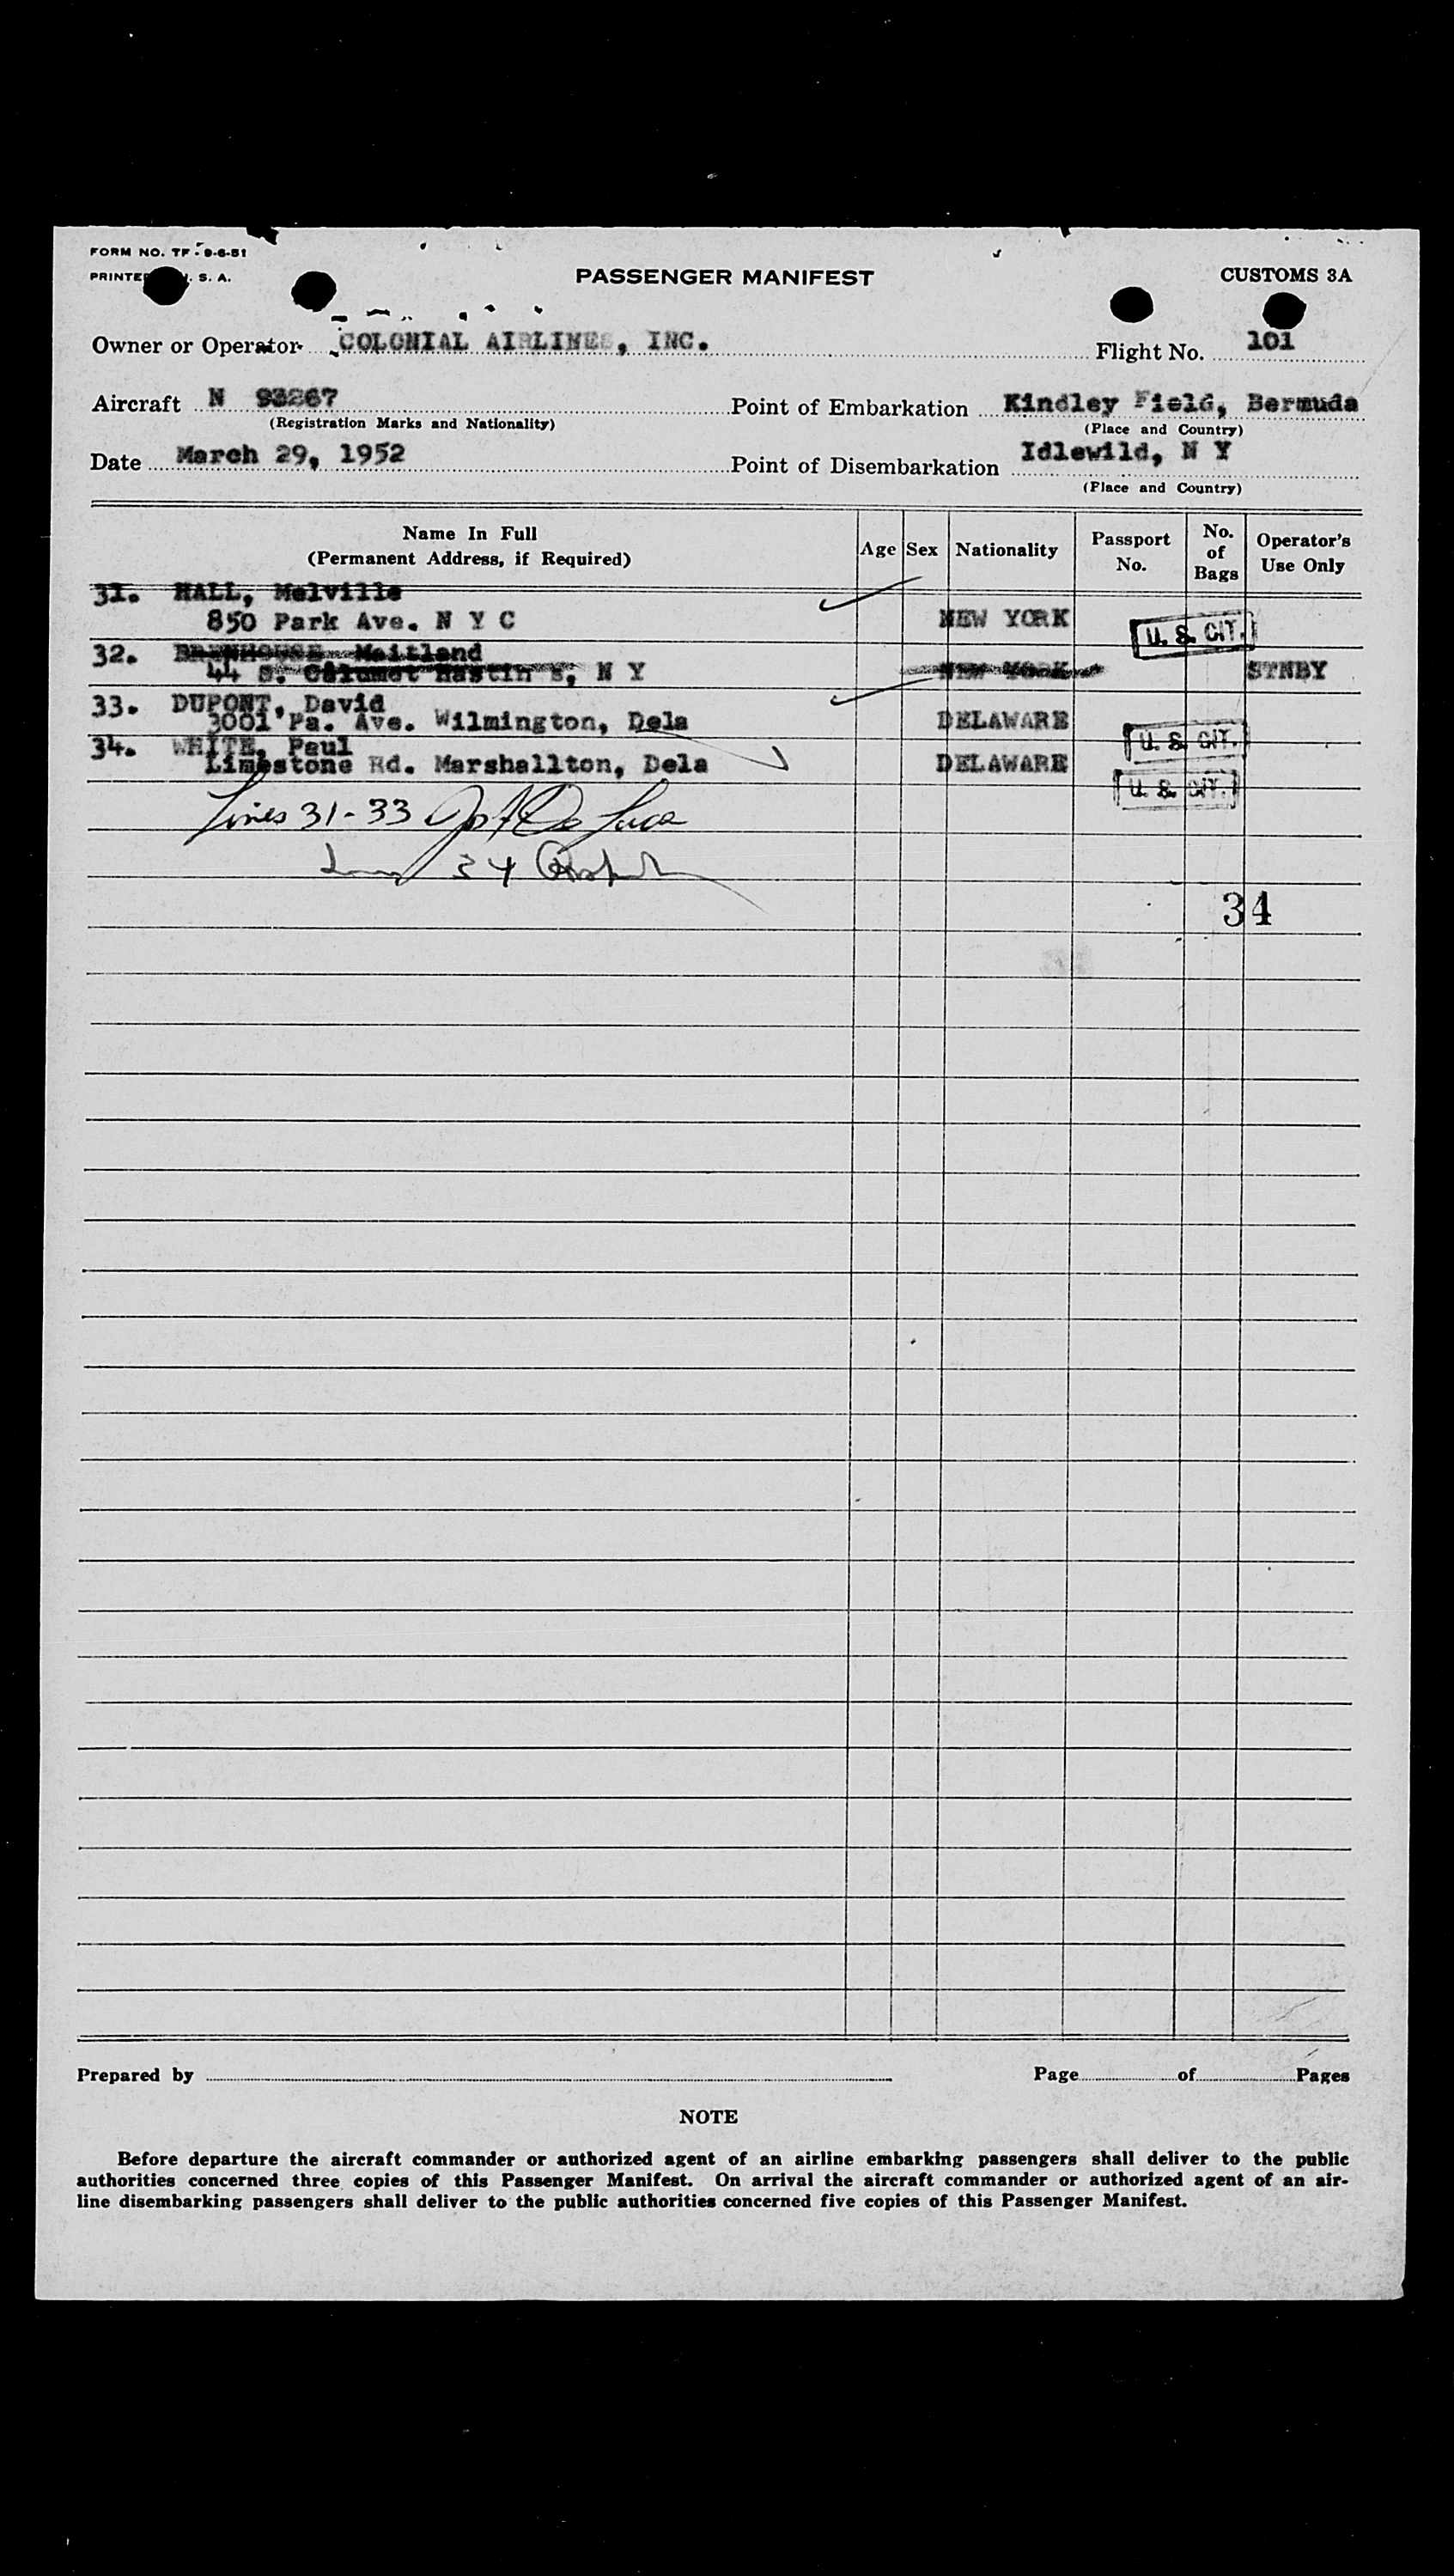 FORM NO. TF - 9-6-51
PRINTED U. S. A.
PASSENGER MANIFEST
CUSTOMS 3A
Owner or Operator COLONIAL AIRLINES, INC.
Flight No. 101
Aircraft N 93267
(Registration Marks and Nationality)
Point of Embarkation Kindley Field, Bermuda
(Place and Country)
Date March 29, 1952
Point of Disembarkation Idlewild, N Y
(Place and Country)
Name In Full
(Permanent Address, if Required)
Age Sex Nationality Passport No. No. of Bags Operator's Use Only
31. HALL, Melville
850 Park Ave. N Y C NEW YORK U. S. CIT.
32. Maitland
44 S. Calumet N Y NEW YORK STNBY
33. DUPONT, David
3001 Pa. Ave. Wilmington, Dela DELAWARE U. S. CIT.
34. WHITE, Paul
Limestone Rd. Marshallton, Dela DELAWARE U. S. CIT.
Lines 31-33 De Luca
34
34
Prepared by
Page of Pages
NOTE
Before departure the aircraft commander or authorized agent of an airline embarking passengers shall deliver to the public
authorities concerned three copies of this Passenger Manifest. On arrival the aircraft commander or authorized agent of an air-
line disembarking passengers shall deliver to the public authorities concerned five copies of this Passenger Manifest.